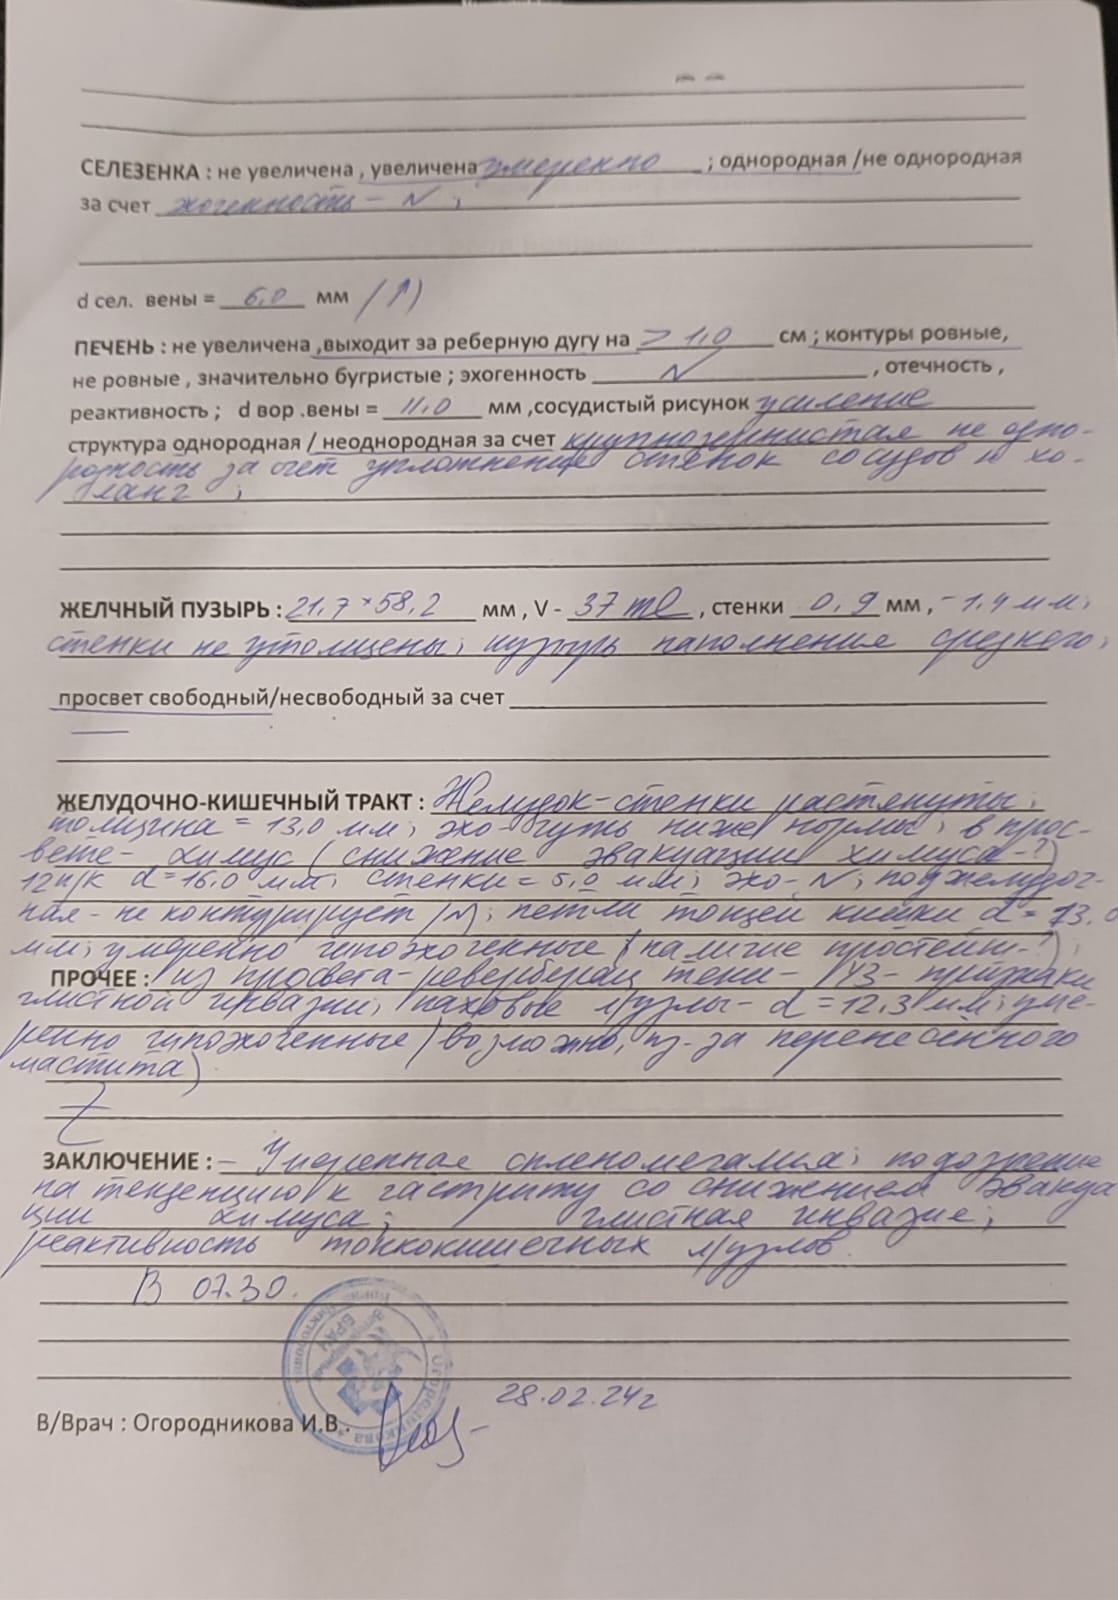 СЕЛЕЗЕНКА : не увеличена , увеличена умеренно ; однородная /не однородная
за счет эхогенность - N ;
d сел. вены = 6,0 мм (↑)
ПЕЧЕНЬ : не увеличена ,выходит за реберную дугу на > 1,0 см ; контуры ровные,
не ровные , значительно бугристые ; эхогенность N , отечность ,
реактивность ; d вор .вены = 11,0 мм ,сосудистый рисунок усиление
структура однородная / неоднородная за счет крупнозернистая не одно-
родность за счет уплотнения стенок сосудов и хо-
ланг ;
ЖЕЛЧНЫЙ ПУЗЫРЬ : 21,7 × 58,2 мм , V - 37 ml , стенки 0,9 мм , - 1.4 мм;
стенки не утолщены; пузырь наполнения среднего;
просвет свободный/несвободный за счет
ЖЕЛУДОЧНО-КИШЕЧНЫЙ ТРАКТ : Желудок - стенки растянуты;
толщина = 13,0 мм; эхо - чуть ниже нормы; в прос-
вете - химус (снижение эвакуации химуса - ?)
12п/к d = 16,0 мм; стенки = 5,0 мм; эхо - N; поджелудоч-
ная - не контурирует (N); петли тощей кишки d = 13.0
мм; умеренно гипоэхогенные (наличие простейш - ?);
ПРОЧЕЕ : из просвета - ревербарац тени - УЗ - признаки
глистной инвазии; паховые л/узлы - d = 12,3 мм; уме-
ренно гипоэхогенные (возможно, из-за перенесенного
мастита)
ЗАКЛЮЧЕНИЕ : - Умеренная спленомегалия; подозрение
на тенденцию к гастриту со снижением эвакуа
ции химуса; глистная инвазие;
реактивность тонкокишечных л/узлов.
В 07.30.
28.02.24г
В/Врач : Огородникова И.В.